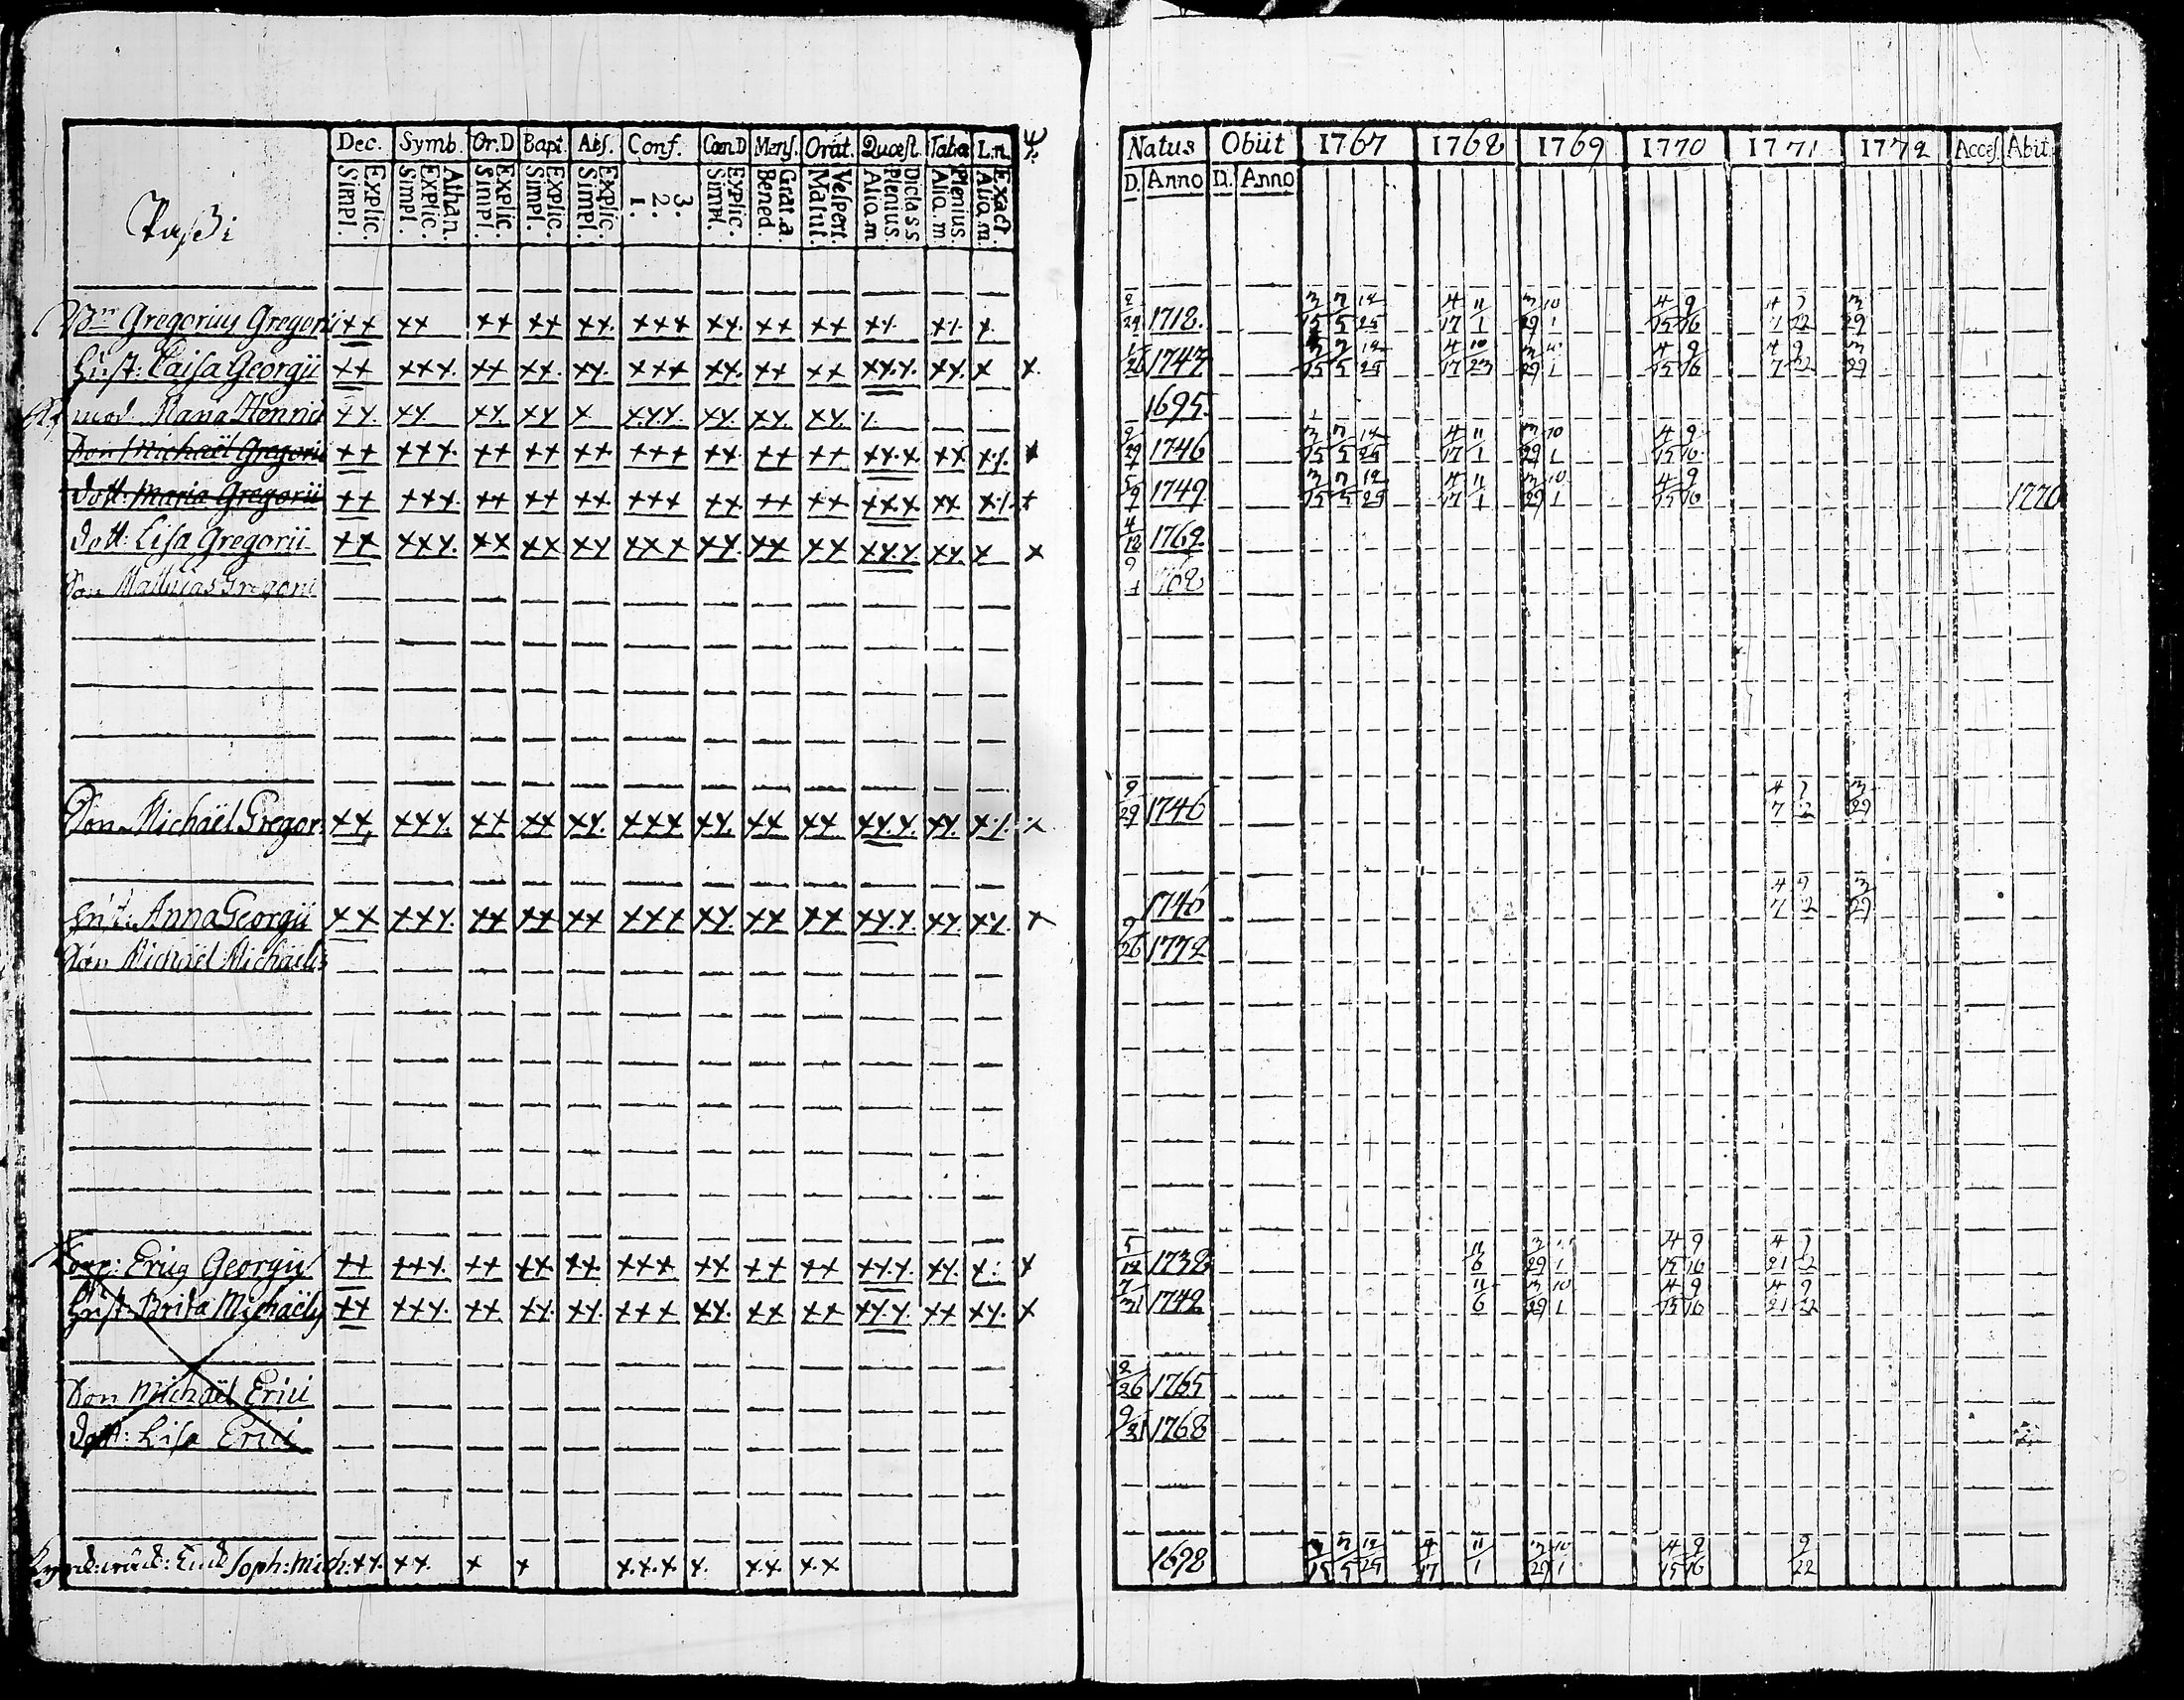 Dec. Symb. Or.D Bapt. Abs. Conf. Cœn.D Mens. Orat. Quæst. Tab.æ L.n.
Explic. Simpl. Athan. Explic. Simpl. Explic. Simpl. Explic. Simpl. Explic. Simpl. 3. 2. 1. Explic. Simpl. Grat.a. Bened. Vespert. Matut. Dicta s.s. Plenius. Aliq.m Plenius. Aliq.m Exact. Aliq.m.
Natus Obiit 1767 1768 1769 1770 1771 1772 Acces. Abit
D. Anno D. Anno
Gregorius Gregorii ×× ×× ×× ×× ×× ××× ×× ×× ×× ×× ×× × 2/24 1718. 3/15 7/5 12/25 4/17 11/1 3/29 10/1 4/15 9/16 4/7 9/22 3/29
Hust: Caisa Georgii ×× ××× ×× ×× ×× ××× ×× ×× ×× ××× ×× × × 1/26 1747 3/15 7/5 12/25 4/17 10/23 3/29 1 4/15 9/16 4/7 9/22 3/29
mod. Henric ×× ×× ×× ×× × ××× ×× ×× ×× 1695.
Son Michaël Gregorii ×× ××× ×× ×× ×× ××× ×× ×× ×× ××× ×× ×× × 9/29 1746 3/15 7/5 12/25 4/17 11/1 3/29 10/1 4/15 9/16
dott: Maria Gregorii ×× ××× ×× ×× ×× ××× ×× ×× ×× ××× ×× ×× × 5/9 1749 3/15 7/5 12/25 4/17 11/1 3/29 10/1 4/15 9/16 1770
dott: Lisa Gregorii ×× ××× ×× ×× ×× ××× ×× ×× ×× ××× ×× × × 4/12
Son Mathias Gregorii
Son Michaël Gregor. ×× ××× ×× ×× ×× ××× ×× ×× ×× ××× ×× ×× × 9/29 1746 4/7 3/29
Anna Georgii ×× ××× ×× ×× ×× ××× ×× ×× ×× ××× ×× ×× × 1746 4/7 3/29
Son Michaël Michaëlis 9/26 1772
Corp: Ericus Georgii ×× ××× ×× ×× ×× ××× ×× ×× ×× ××× ×× × × 5/12 1738 11/6 3/29 1 4/15 9/16 4/21
Hust: Brita Michaëlis ×× ××× ×× ×× ×× ××× ×× ×× ×× ××× ×× ×× × 7/31 1742 11/6 3/29 10/1 4/15 9/16 4/21 9/22
Son Michaël Erici 2/26 1765
dott: Lisa Erici 1768
Soph: Mich: ×× ×× × × ××× × ×× ×× 1698 3/15 7/5 12/25 4/17 11/1 3/29 10/1 4/15 9/16 9/22